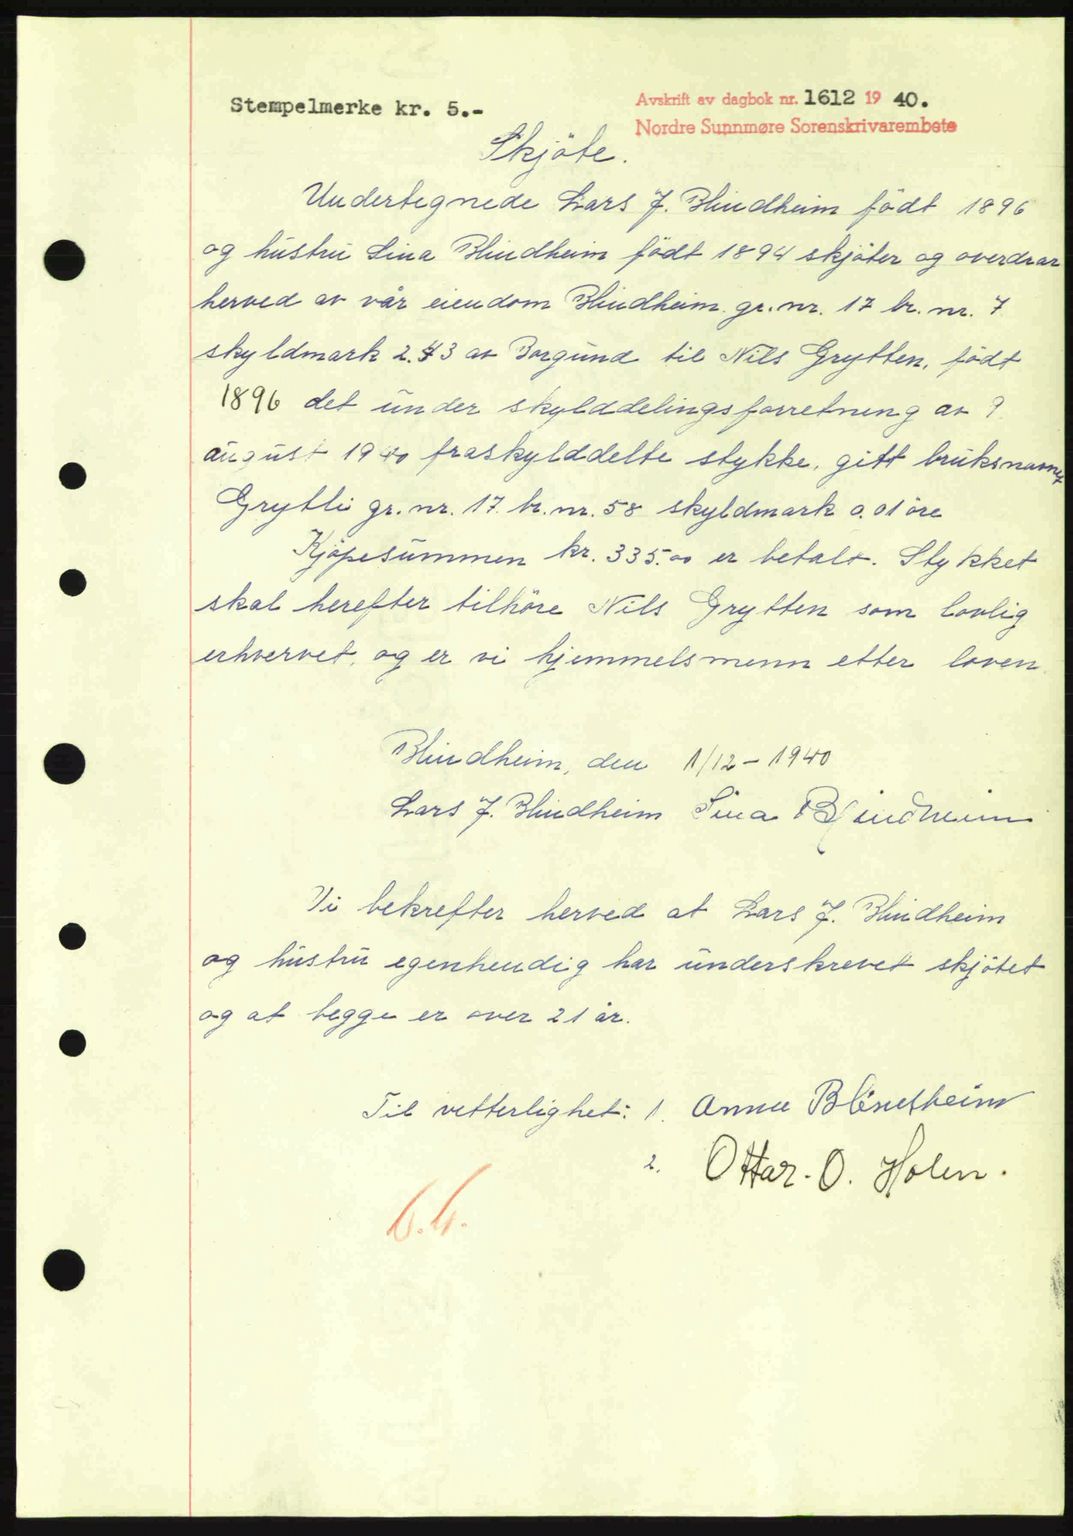 Stempelmerke kr. 5.-
Avskrift av dagbok nr. 1612 19 40.
Nordre Sunnmøre Sorenskrivarembete
Skjöte.
Undertegnede Lars J. Blindheim födt 1896
og hustru Sina Blindheim födt 1894 skjöter og overdrar
herved av vår eiendom Blindheim gr. nr. 17 br. nr. 7
skyldmark 2.43 av Borgund til Nils Grytten, födt
1896 det under skylddelingsforretning av 9
august 1940 fraskylddelte stykke, gitt bruksnavnet
Grytli gr. nr. 17. br. nr. 58 skyldmark 0.01 öre
Kjöpesummen kr. 335.00 er betalt. Stykket
skal herefter tilhöre Nils Grytten som lovlig
erhvervet, og er vi hjemmelsmenn etter loven
Blindheim, den 1/12-1940
Lars J. Blindheim Sina Blindheim
Vi bekrefter herved at Lars J. Blindheim
og hustru egenhendig har underskrevet skjötet
og at begge er over 21 år.
Til vitterlighet: 1. Anna Blindheim
2. Ottar. O. Holen.